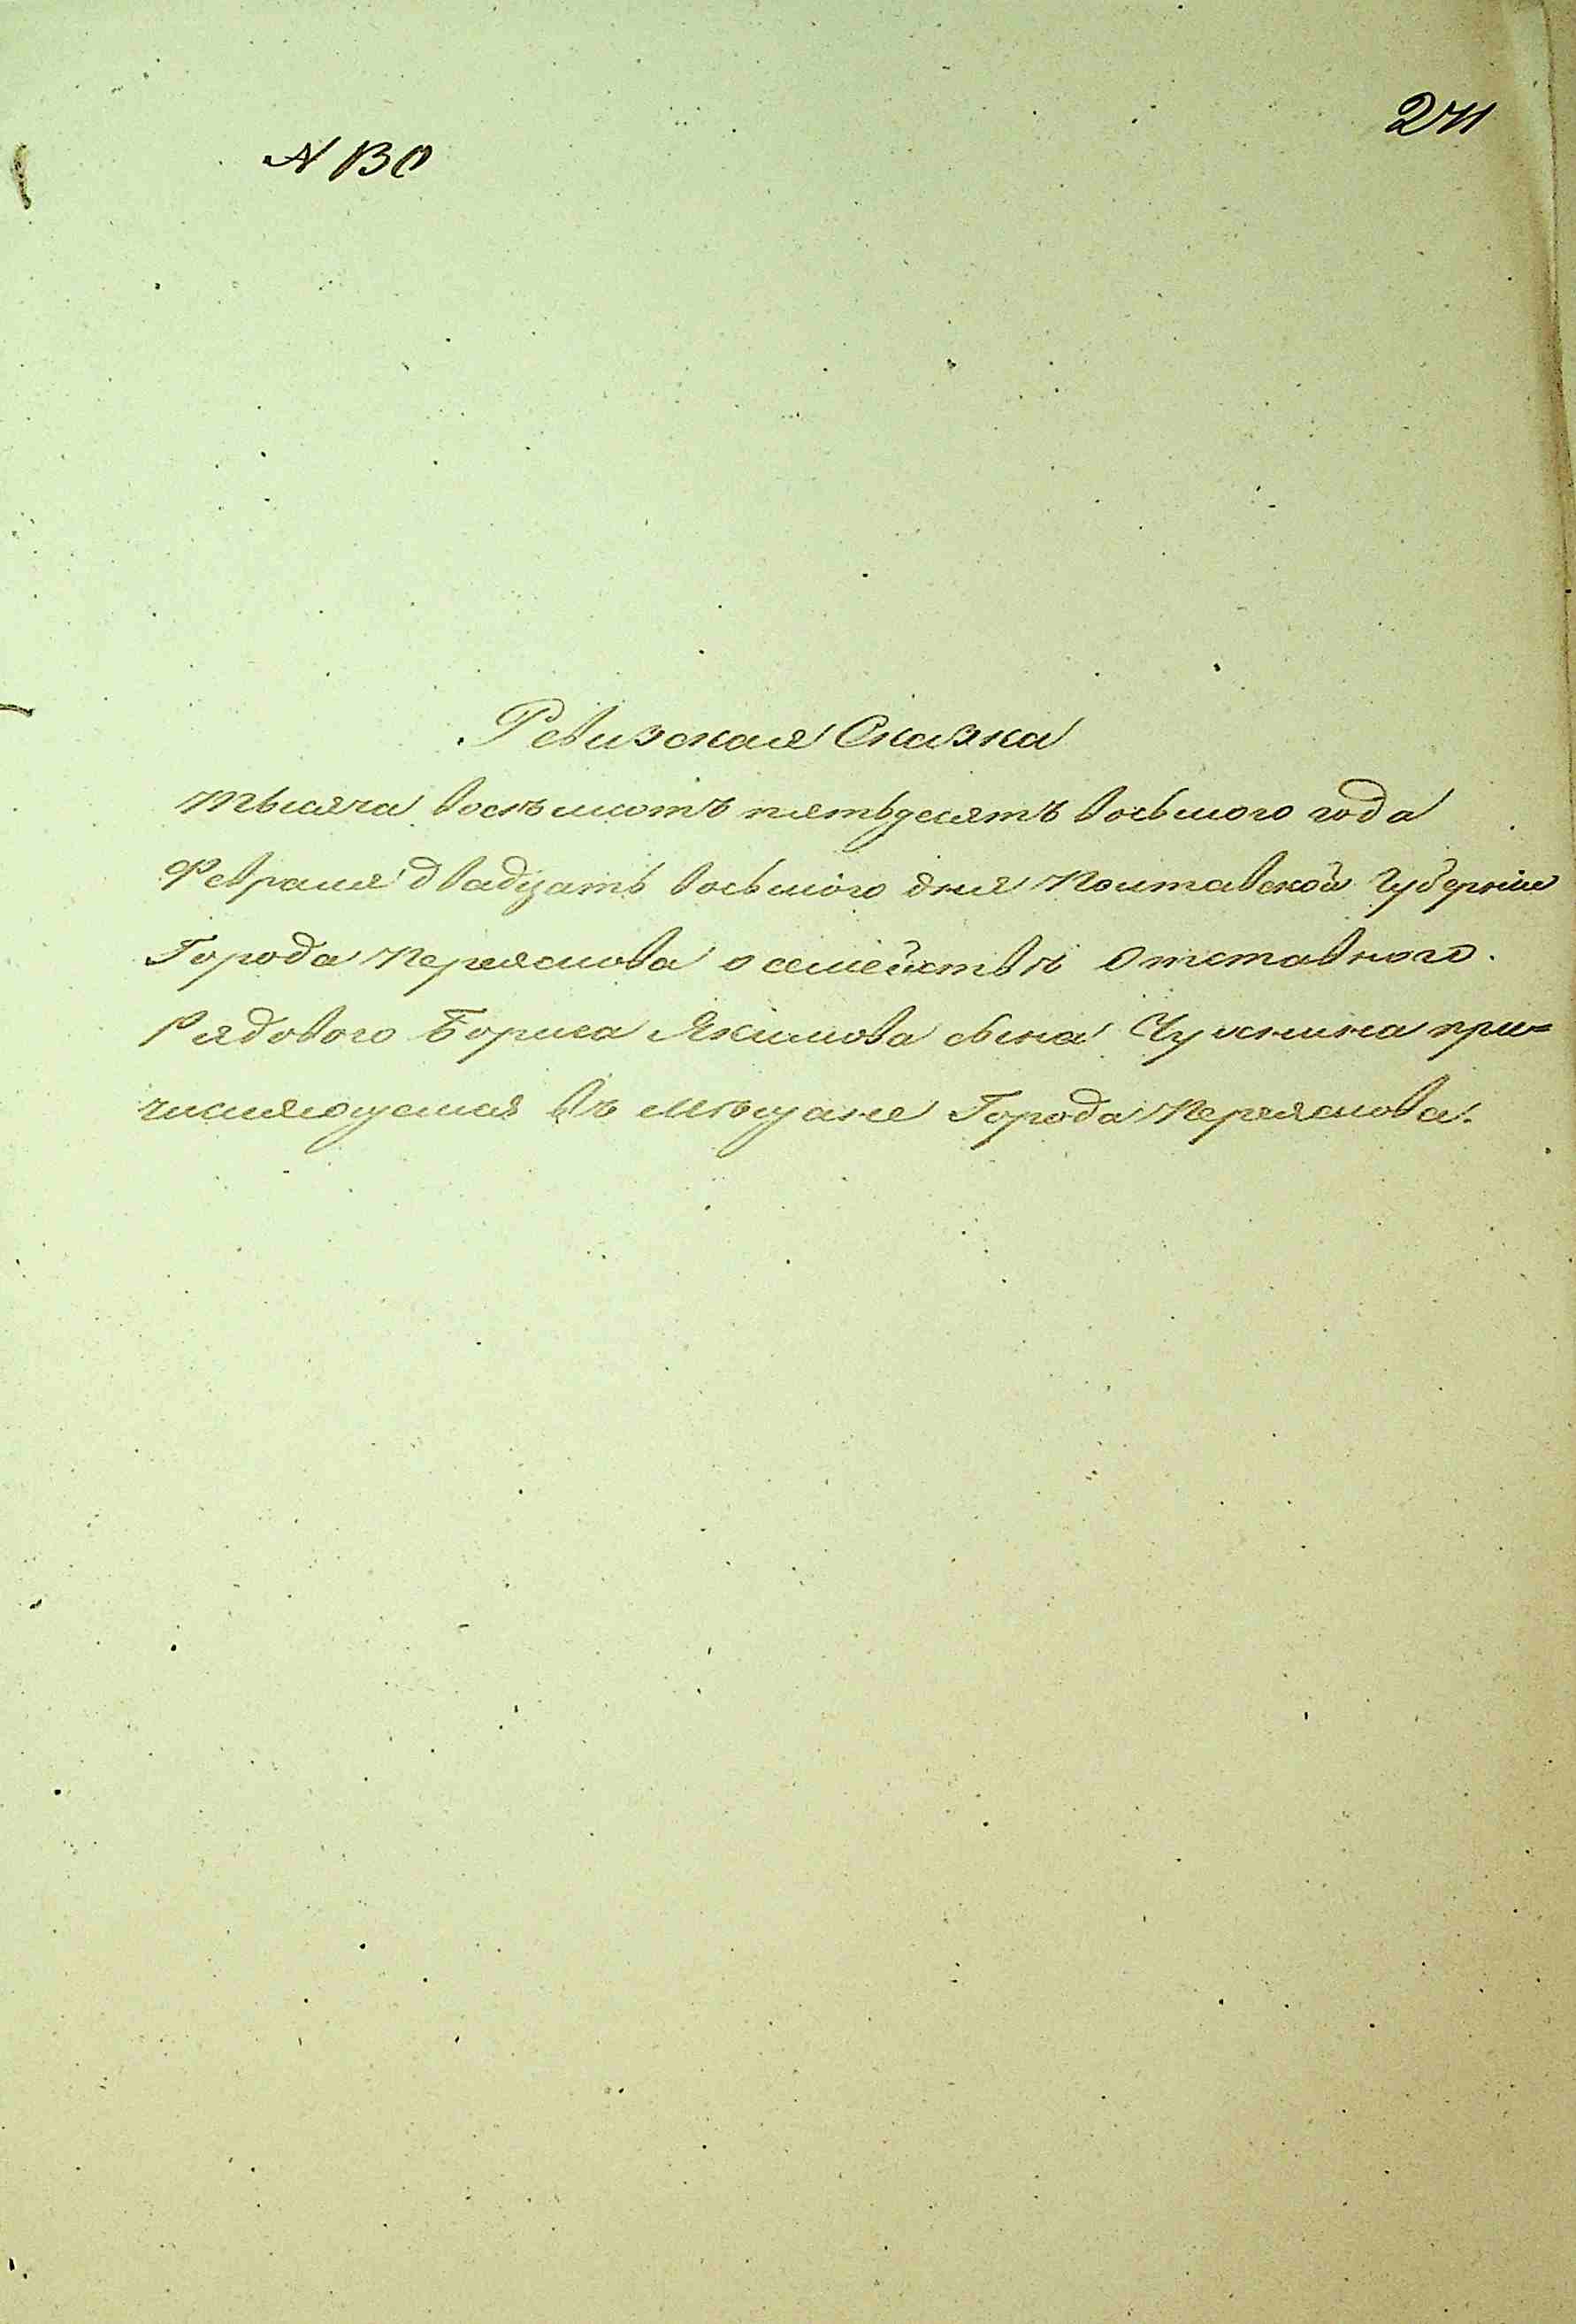 271
N 130
Ревизская Сказка
тысяча восѣмьсотъ пятьдесятъ восьмого года
Февраля двадцать восьмого дня Полтавской Губерніи
Города Переяслова о семействѣ Отставного
Рядового Бориса Якимова сына при=
числяющемся въ мѣщане Города Переяслова.